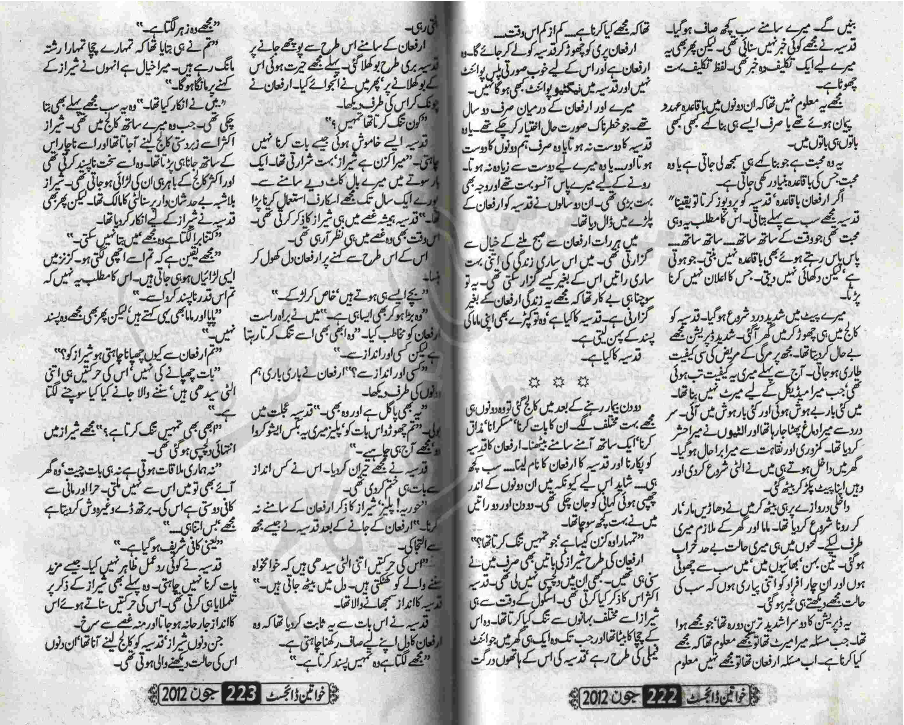 بنیں گے۔ میرے سامنے سب کچھ صاف ہو گیا۔
قدسیہ نے مجھے کوئی خبر نہیں سنائی تھی۔ لیکن پھر بھی یہ
میرے لیے ایک تکلیف دہ خبر تھی۔ لفظ تکلیف بہت
چھوٹا ہے۔
مجھے یہ معلوم نہیں تھا کہ ان دونوں میں باقاعدہ عہد و
پیمان ہوئے تھے یا صرف ایسے ہی بنا کہے کبھی کبھی
باتوں ہی باتوں میں۔
یہ وہ محبت ہے جو بنا کہے ہی سمجھ لی جاتی ہے یا وہ
محبت جس کی باقاعدہ بنیاد رکھی جاتی ہے۔
اگر ارفعان باقاعدہ قدسیہ کو پروپوز کرتا تو یقیناً"
قدسیہ مجھے سب سے پہلے بتاتی۔ اس کا مطلب یہ وہی
محبت تھی جو وقت کے ساتھ ساتھ۔ ساتھ ساتھ۔
پاس پاس رہتے ہوئے بھی باقاعدہ نہیں بنتی۔ جو ہوتی
ہے لیکن دکھائی نہیں دیتی۔ جس کا اعلان نہیں کرنا
پڑتا۔
میرے پیٹ میں شدید درد شروع ہو گیا۔ قدسیہ کو
کالج میں ہی چھوڑ کر میں گھر آ گئی۔ شدید ڈپریشن مجھے
بے حال کر دیتا تھا۔ مجھ پر مرگی کے مریض کی سی کیفیت
طاری ہو جاتی۔ آج سے پہلے میری یہ کیفیت تب ہوئی
تھی جب میرا میڈیکل کے لیے میرٹ نہیں بنا تھا۔
میں کئی بار بے ہوش ہوئی اور کئی بار ہوش میں آئی۔ سر
درد سے میرا دماغ پھٹا جا رہا تھا اور الٹیوں نے میرا حشر
کر دیا تھا۔ کمزوری اور نقاہت سے میرا برا حال ہو گیا۔
گھر میں داخل ہوتے ہی میں نے الٹی شروع کر دی اور
وہیں اپنا پیٹ پکڑ کر بیٹھ گئی۔
داخلی دروازے پر ہی بیٹھ کر میں نے دھاڑیں مار مار
کر رونا شروع کر دیا تھا۔ ماما اور گھر کے ملازم میری
طرف لپکے۔ لمحوں میں ہی میری حالت بے حد خراب
ہو گئی۔ تین بہن بھائیوں میں میں سب سے چھوٹی
ہوں اور ان چار افراد کو اتنی پیاری ہوں کہ سب کی
حالت مجھے دیکھتے ہی غیر ہو گئی۔
یہ ڈپریشن کا دوسرا شدید ترین دورہ تھا جو مجھے ہوا
تھا۔ جب مسئلہ میرا میرٹ تھا تو مجھے معلوم تھا کہ مجھے
کیا کرنا ہے۔ اب مسئلہ ارفعان تھا تو مجھے نہیں معلوم
تھا کہ مجھے کیا کرنا ہے۔ کم از کم اس وقت۔
ارفعان پری کو چھوڑ کر قدسیہ کو لے کر جائے گا۔ وہ
ارفعان ہے اور اس کے لیے خوب صورتی پلس پوائنٹ
نہیں اور قدسیہ میں نیگٹیو پوائنٹ بھی ہو گا نہیں۔
میرے اور ارفعان کے درمیان صرف دو سال
تھے۔ جو خطرناک صورت حال اختیار کر چکے تھے۔ یا وہ
قدسیہ کا دوست نہ ہوتا یا وہ صرف ہم دونوں کا دوست
ہوتا اور۔ یا وہ میرے لیے دوست سے زیادہ نہ ہوتا۔
رونے کے لیے میرے پاس آنسو بہت تھے اور وجہ بھی
بہت بڑی تھی۔ ان دو سالوں نے قدسیہ کو ارفعان کے
پلڑے میں ڈال دیا تھا۔
میں ہر رات ارفعان سے صبح ملنے کے خیال سے
گزارتی تھی۔ میں اس ساری زندگی کی اتنی بہت
ساری راتیں اس کے بغیر کیسے گزار سکتی تھی۔ یہ تو
سوچنا ہی بے کار تھا کہ مجھے یہ زندگی ارفعان کے بغیر
گزارنی ہے۔ قدسیہ کا کیا ہے وہ تو کپڑے بھی اپنی ماما کی
پسند کے پہن لیتی ہے۔
قدسیہ کا کیا ہے۔
☼ ☼ ☼
دو دن بیمار رہنے کے بعد میں کالج گئی تو وہ دونوں ہی
مجھے بہت مختلف لگے۔ ان کا بات کرنا مسکرانا مذاق
کرنا ایک ساتھ آمنے سامنے بیٹھنا۔ ارفعان کا قدسیہ
کو پکارنا اور قدسیہ کا ارفعان کا نام لینا۔ سب کچھ
ہی۔ شاید اس لیے کیونکہ میں ان دونوں کے اندر
چھپی ہوئی کہانی کو جان چکی تھی۔ دو دن اور دو راتیں
میں نے بہت کچھ سوچا تھا۔
"تمہارا وہ کزن کیسا ہے جو تمہیں تنگ کرتا تھا؟"
ارفعان کی طرح شیراز کی باتیں بھی صرف میں نے
سنی تھیں۔ بھی ان میں دلچسپی نہیں لی تھی۔ قدسیہ
اکثر اس کا ذکر کیا کرتی تھی۔ اسکول کے وقت سے ہی
شیراز اسے مختلف بہانوں سے تنگ کیا کرتا تھا۔ اس
کے چچا کا بیٹا تھا اور جب تک وہ ایک ہی گھر میں جوائنٹ
فیملی کی طرح رہے قدسیہ کی اس کے ہاتھوں درگت
خواتین ڈائجسٹ 222 جون 2012
بنتی رہی۔
ارفعان کے سامنے اس طرح سے پوچھے جانے پر
قدسیہ بری طرح بوکھلا گئی۔ پہلے مجھے حیرت ہوئی اس
کے بوکھلانے پر پھر میں نے انجوائے کیا۔ ارفعان نے
چونک کر اس کی طرف دیکھا۔
"کون تنگ کرتا تھا تمہیں؟"
قدسیہ ایسے خاموش ہوئی جیسے بات کرنا نہیں
چاہتی۔ "میرا کزن ہے شیراز بہت شرارتی تھا۔ ایک
بار سوتے میں میرے بال کاٹ دیے سامنے سے۔
پورے ایک سال تک مجھے اسکارف استعمال کرنا پڑا
تھا۔" قدسیہ ہمیشہ غصے میں ہی شیراز کا ذکر کرتی تھی۔
اس وقت بھی وہ غصے میں ہی نظر آ رہی تھی۔
اس کے اس طرح سے کہنے پر ارفعان دل کھول کر
ہنسا۔
"بچے ایسے ہی ہوتے ہیں خاص کر لڑکے۔"
"وہ بڑا ہو کر بھی ایسا ہی ہے۔" میں نے براہ راست
ارفعان کو مخاطب کیا۔ "وہ ابھی بھی اسے تنگ کرتا رہتا
ہے لیکن کسی اور انداز سے۔"
"کسی اور انداز سے؟" ارفعان نے باری باری ہم
دونوں کی طرف دیکھا۔
"یہ بھی پاگل ہے اور وہ بھی۔" قدسیہ عجلت میں
بولی۔ "تم چھوڑو اس بات کو پلیز میری یہ بکس ایشو کروا
دو مجھے آج ہی چاہیے۔"
قدسیہ نے مجھے حیران کر دیا۔ اس نے کس انداز
سے بات ہی ختم کر دی تھی۔
"حوریہ! پلیز شیراز کا ذکر ارفعان کے سامنے نہ
کرنا۔" ارفعان کے جانے کے بعد قدسیہ نے جیسے مجھ
سے التجا کی۔
"اس کی حرکتیں اتنی الٹی سیدھی ہیں کہ خوامخواہ
سننے والے کو کھٹکتی ہیں۔ دل میں بیٹھ جاتی ہیں۔"
قدسیہ کا انداز سمجھانے والا تھا۔
قدسیہ نے اس بات سے یہ ثابت کر دیا تھا کہ وہ
ارفعان کا دل اپنے لیے صاف رکھنا چاہتی ہے۔
"مجھے لگتا ہے وہ تمہیں پسند کرتا ہے۔"
"مجھے وہ زہر لگتا ہے۔"
"تم نے ہی بتایا تھا کہ تمہارے چچا تمہارا رشتہ
مانگ رہے ہیں۔ میرا خیال ہے انہوں نے شیراز کے
کہنے پر مانگا ہو گا۔"
"میں نے انکار کیا تھا۔" وہ یہ سب مجھے پہلے بھی بتا
چکی تھی۔ جب وہ میرے ساتھ کالج میں تھی۔ شیراز
اکثر اسے زبردستی کالج لینے آ جاتا تھا اور اسے ناچار اس
کے ساتھ جانا ہی پڑتا تھا۔ وہ اسے سخت ناپسند کرتی تھی
اور اکثر کالج کے باہر ہی ان کی لڑائی ہو جاتی تھی۔ شیراز
بلاشبہ بے حد شان دار پرسنالٹی کا مالک تھا۔ لیکن پھر بھی
قدسیہ نے شیراز کے لیے انکار کر دیا تھا۔
"کتنا برا لگتا ہے وہ مجھے میں بتا نہیں سکتی۔"
"مجھے یقین ہے کہ تم اسے اچھی لگتی ہو۔ کزنز میں
ایسی لڑائیاں ہو ہی جاتی ہیں۔ اس کا مطلب یہ نہیں کہ
تم اس قدر ناپسند کرو اسے۔"
"پاپا اور ماما بھی یہی کہتے ہیں لیکن پھر بھی مجھے وہ پسند
نہیں۔"
"تم ارفعان سے کیوں چھپانا چاہتی ہو شیراز کو؟"
"بات چھپانے کی نہیں اس کی حرکتیں ہی اتنی
الٹی سیدھی ہیں سننے والا جانے کیا کیا سوچنے لگتا
ہے۔"
"ابھی بھی تمہیں تنگ کرتا ہے؟" مجھے شیراز میں
انتہائی دلچسپی ہو گئی تھی۔
"نہ ہماری ملاقات ہوتی ہے نہ ہی بات چیت وہ گھر
آئے بھی تو میں اس سے نہیں ملتی۔ حرا اور مانی سے
کافی دوستی ہے اس کی۔ برتھ ڈے وغیرہ وش کر دیتا ہے
مجھے بس اتنا ہی۔"
"یعنی کافی شریف ہو گیا ہے۔"
قدسیہ نے کوئی رد عمل ظاہر نہیں کیا۔ جیسے مزید
بات کرنا نہیں چاہتی۔ وہ پہلے بھی شیراز کے ذکر پر
تلملایا ہی کرتی تھی۔ اس کی حرکتیں سناتے ہوئے اس
کا انداز جارحانہ ہو جاتا اور منہ غصے سے سرخ۔
جن دنوں شیراز قدسیہ کو کالج لینے آتا تھا ان دنوں
اس کی حالت دیکھنے والی ہوتی تھی۔
خواتین ڈائجسٹ 223 جون 2012